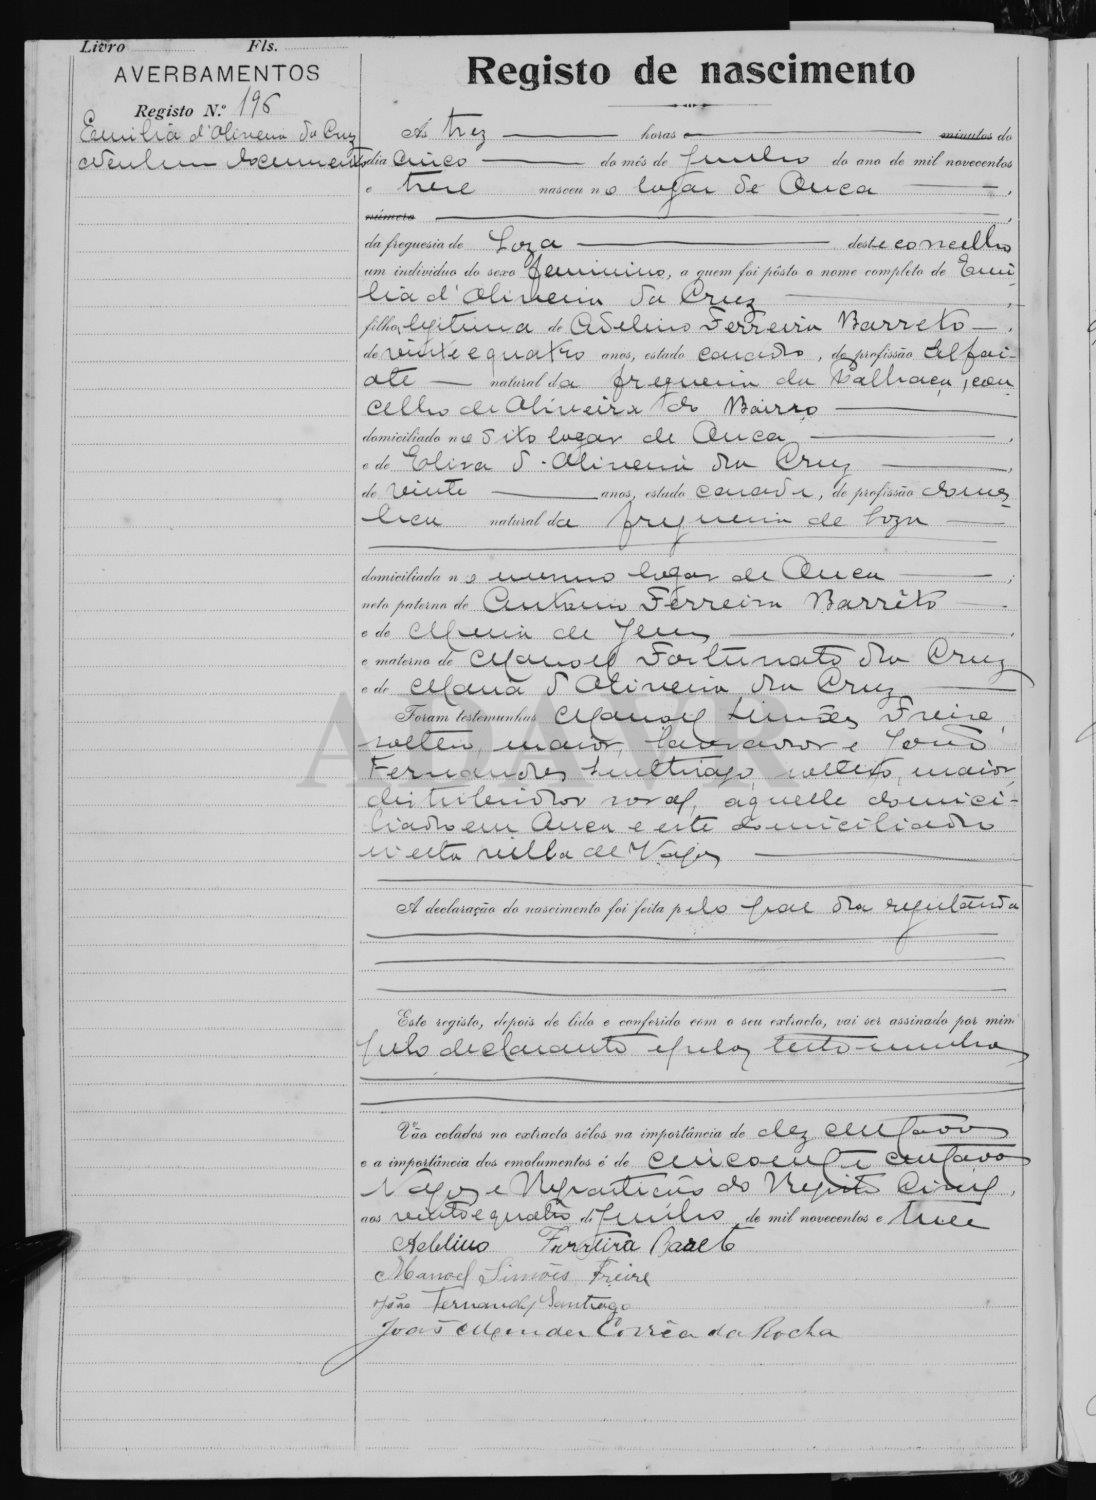 Livro Fls.
AVERBAMENTOS
Registo N.º 196
Emilia d'Oliveira da Cruz
documento
Registo de nascimento
Ás trez horas e minutos do
dia cinco do mês de Junho do ano de mil novecentos
e treze nasceu no logar de Ouca
número
da freguesia de Soza deste concelho
um individuo do sexo feminino, a quem foi pôsto o nome completo de Emi-
lia d'Oliveira da Cruz
filha legitima de Adelino Ferreira Barreto
de vinte e quatro anos, estado casado, de profissão Alfai-
ate natural da freguesia da Palhaça, con-
celho de Oliveira do Bairro
domiciliado no dito logar de Ouca
e de Elisa d'Oliveira da Cruz
de vinte anos, estado casada, de profissão domes-
tica natural da freguesia de Soza
domiciliada no mesmo logar de Ouca
neto paterno de Antonio Ferreira Barrêto
e de Maria de Jesus
e materno de Manoel Fortunato da Cruz
e de Maria d'Oliveira da Cruz
Foram testemunhas Manoel Simões Freire,
solteiro, maior, lavrador e João
Fernandes Santhiago, solteiro, maior,
distribuidor rural, aquelle domici-
liado em Ouca e este domiciliado
n'esta villa de Vagos
A declaração do nascimento foi feita pelo pae da registanda
Este registo, depois de lido e conferido com o seu extracto, vai ser assinado por mim
pelo declarante e pelas testemunhas
Vão colados no extracto sêlos na importância de dez centavos
e a importância dos emolumentos é de cincoenta centavos
Vagos e Repartição do Registo Civil,
aos vinte e quatro de Junho de mil novecentos e treze
Adelino Ferreira Bareto
Manoel Simões Freire
João Fernandes Santiago
João Mendes Corrêa da Rocha
ADAVR